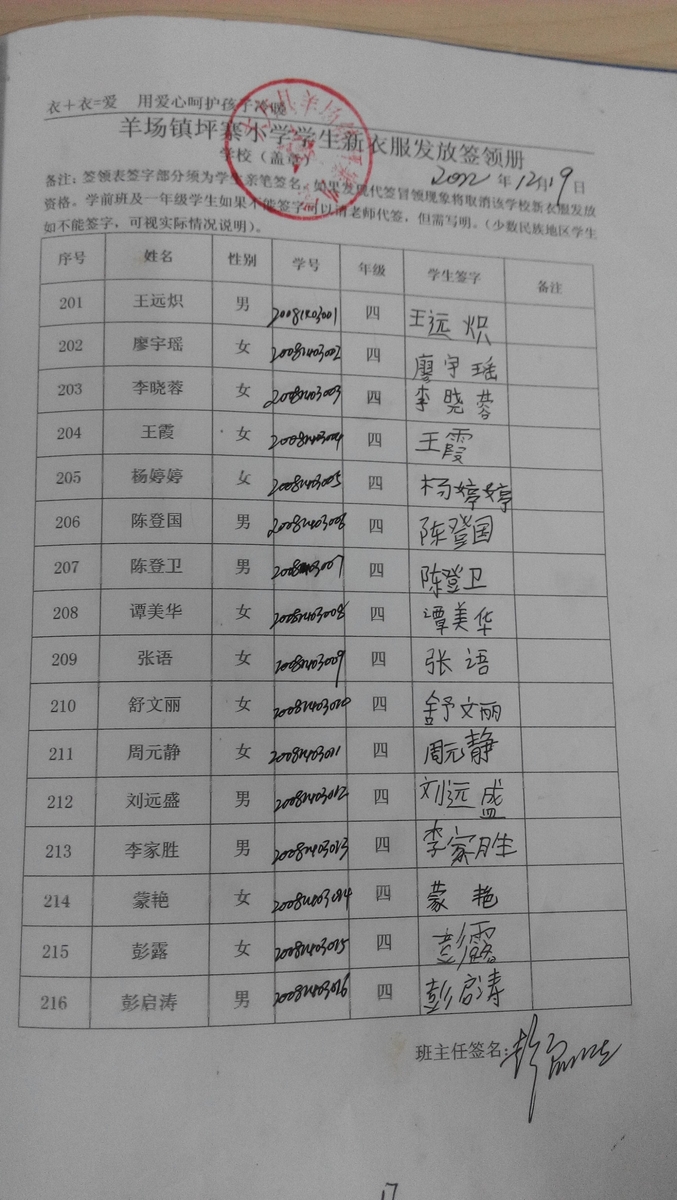 衣+衣=爱 用爱心呵护孩子冷暖
羊场镇坪寨小学学生新衣服发放签领册
学校（盖章） 2012年12月19日
备注：签领表签字部分须为学生亲笔签名，如果发现代签冒领现象将取消该学校新衣服发放
资格。学前班及一年级学生如果不能签字可以请老师代签，但需写明。（少数民族地区学生
如不能签字，可视实际情况说明）。
序号 姓名 性别 学号 年级 学生签字 备注
201 王远炽 男 20081403001 四 王远炽
202 廖宇瑶 女 20081403002 四 廖宇瑶
203 李晓蓉 女 20081403003 四 李晓蓉
204 王霞 女 20081403004 四 王霞
205 杨婷婷 女 20081403005 四 杨婷婷
206 陈登国 男 20081403006 四 陈登国
207 陈登卫 男 20081403007 四 陈登卫
208 谭美华 女 20081403008 四 谭美华
209 张语 女 20081403009 四 张语
210 舒文丽 女 20081403010 四 舒文丽
211 周元静 女 20081403011 四 周元静
212 刘远盛 男 20081403012 四 刘远盛
213 李家胜 男 20081403013 四 李家胜
214 蒙艳 女 20081403014 四 蒙艳
215 彭露 女 20081403015 四 彭露
216 彭启涛 男 20081403016 四 彭启涛
班主任签名：
17